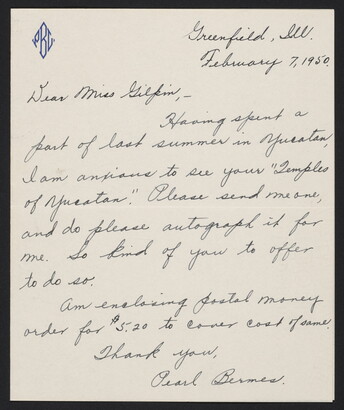 PBL
Greenfield, Ill.
February 7, 1950.
Dear Miss Gilpin,-
Having spent a
part of last summer in Yucatan,
I am anxious to see your "Temples
of Yucatan". Please send me one,
and do please autograph it for
me. So kind of you to offer
to do so.
Am enclosing postal money
order for $5.20 to cover cost of same.
Thank you,
Pearl Bermes.